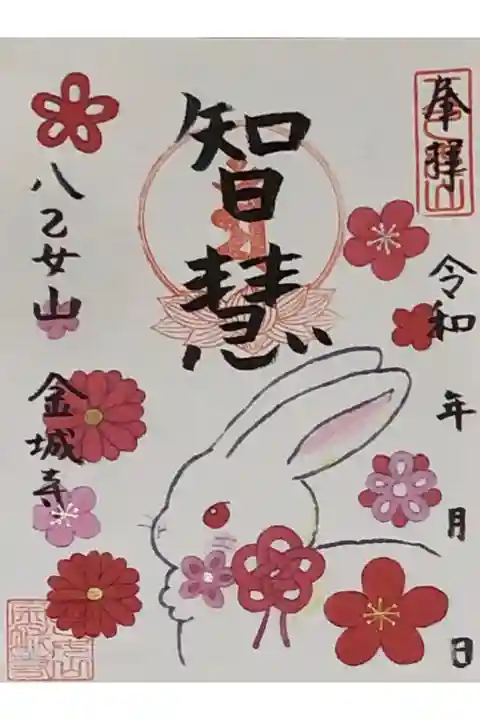 奉拝
令和 年 月 日
智慧
八乙女山 金城寺